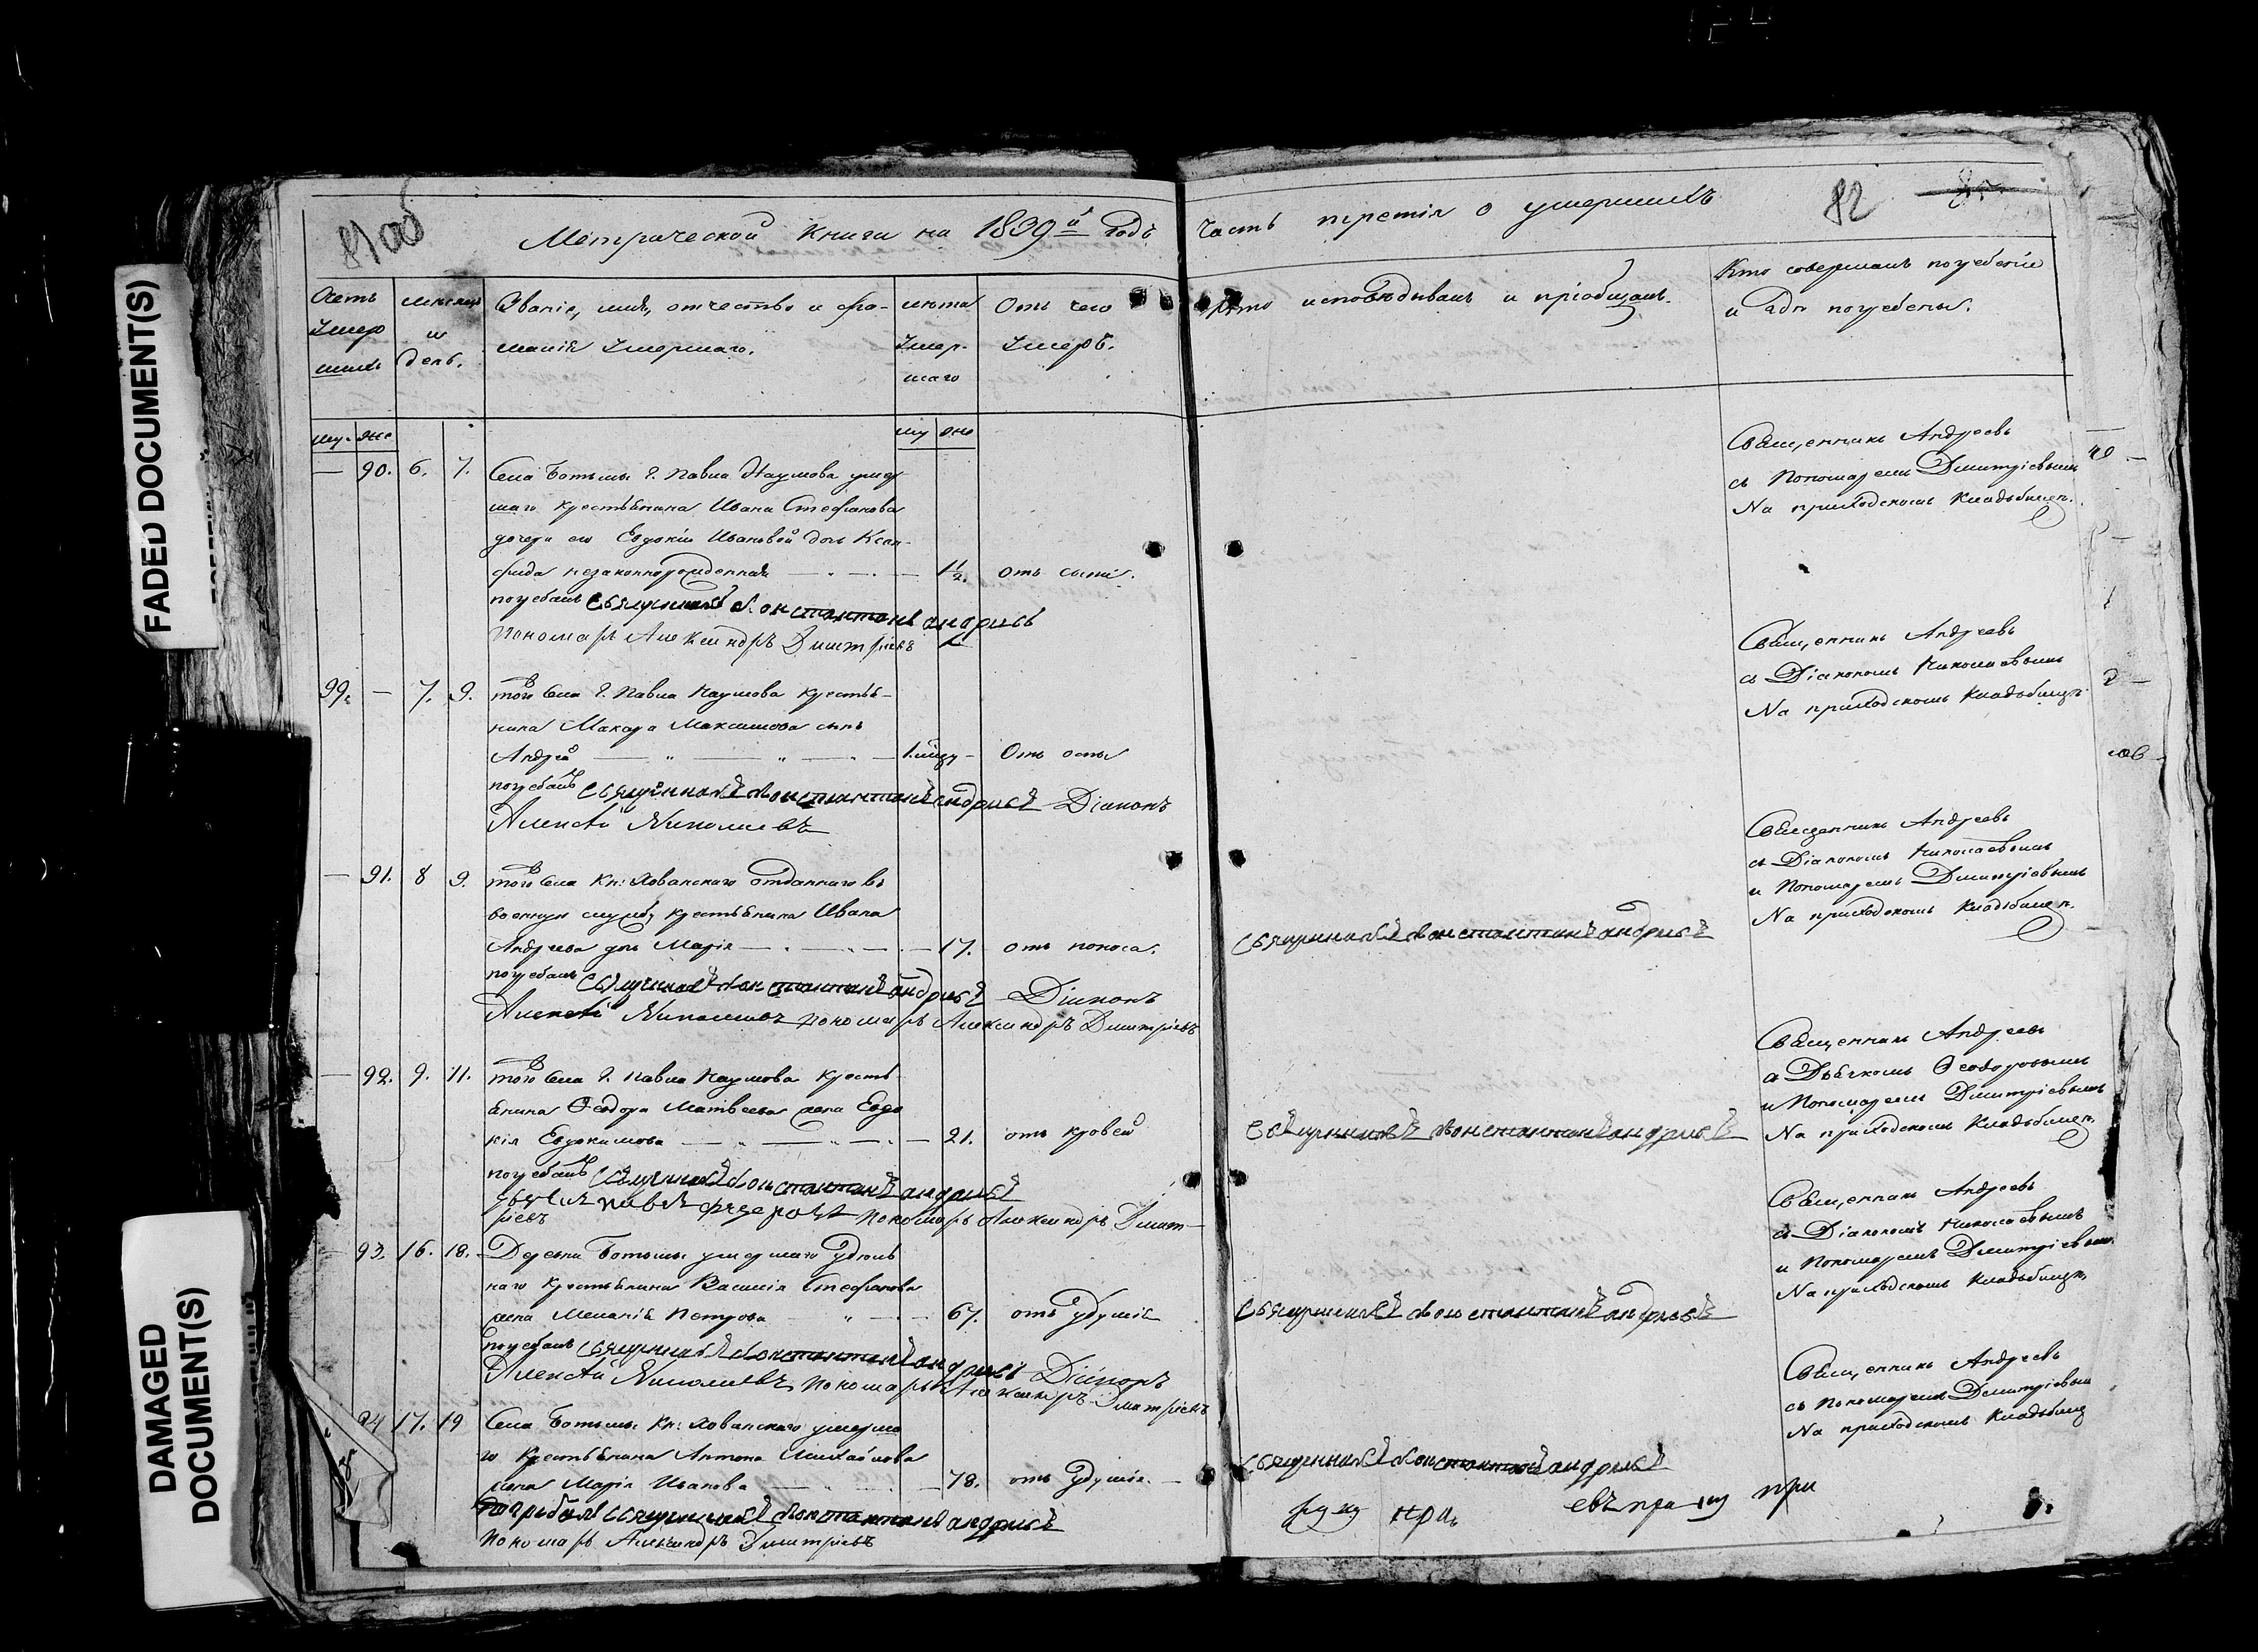 FADED DOCUMENT(S)
DAMAGED
DOCUMENT(S)
81 об
Метрической книги на 1839й Годъ
часть третія о умершихъ
82
Счетъ
Умер
шихъ
мѣсяцъ
и
день.
Званіе, имя, отчество и фа-
милія Умершаго.
лѣта
Умер-
шаго
Отъ чего
Умеръ.
Кто исповѣдывалъ и пріобщалъ.
Кто совершалъ погребеніе
и гдѣ погребены.
му. же
му же
90. 6. 7.
Села Ботьмы Г. Павла Наумова умер
шаго крестьянина Ивана Стефанова
дочери его Евдокіи Ивановой дочь
незаконнорожденная 1½. отъ сыпи.
погребалъ Священникъ Константинъ Андреевъ
пономарь Александръ Дмитріевъ
Священникъ Андреевъ
съ Пономаремъ Дмитріевымъ
На приходскомъ кладьбищѣ.
99. — 7. 9.
того Села Г. Павла Наумова крестья-
нина Макара Максимова сынъ
Андрей Отъ оспы
погребалъ Священникъ Константинъ Андреевъ Діаконъ
Алексѣй Николаевъ
Священникъ Андреевъ
съ Діакономъ Николаевымъ
На приходскомъ кладьбищѣ
— 91. 8 9.
того Села Кн: Хованскаго отданнаго въ
военную службу крестьянина Ивана
Андреева дочь Марія 17. отъ поноса.
погребалъ Священникъ Константинъ Андреевъ Діаконъ
Алексѣй Николаевъ пономарь Александръ Дмитріевъ
Священникъ Константинъ Андреевъ
Священникъ Андреевъ
съ Діакономъ Николаевымъ
и Пономаремъ Дмитріевымъ
На приходскомъ кладьбищѣ.
— 92. 9. 11.
того Села Г. Павла Наумова кресть
янина Ѳеодора Матвѣева жена Евдо
кія Евдокимова 21. отъ кровей
погребалъ Священникъ Константинъ Андреевъ
пономарь Александръ Дмит-
ріевъ
Священникъ Константинъ Андреевъ
Священникъ Андреевъ
съ Дьячкомъ Ѳеодоровымъ
и Пономаремъ Дмитріевымъ
На приходскомъ кладьбищѣ.
— 93. 16. 18.
Деревни Ботьмы умершаго Удѣль
наго крестьянина Василія Стефанова
жена Меланія Петрова 67. отъ удушія
погребалъ Священникъ Константинъ Андреевъ Діаконъ
Алексѣй Николаевъ пономарь Александръ Дмитріевъ
Священникъ Константинъ Андреевъ
Священникъ Андреевъ
съ Діакономъ Николаевымъ
и Пономаремъ Дмитріевым
На приходскомъ кладьбищѣ
94 17. 19
Села Ботьмы Кн: Хованскаго умерша
го крестьянина Антона Михайлова
жена Марія Иванова 78. отъ удушія.
погребалъ Священникъ Константинъ Андреевъ
пономарь Александръ Дмитріевъ
Священникъ Константинъ Андреевъ
Священникъ Андреевъ
съ Пономаремъ Дмитріевым
На приходскомъ кладьбищ